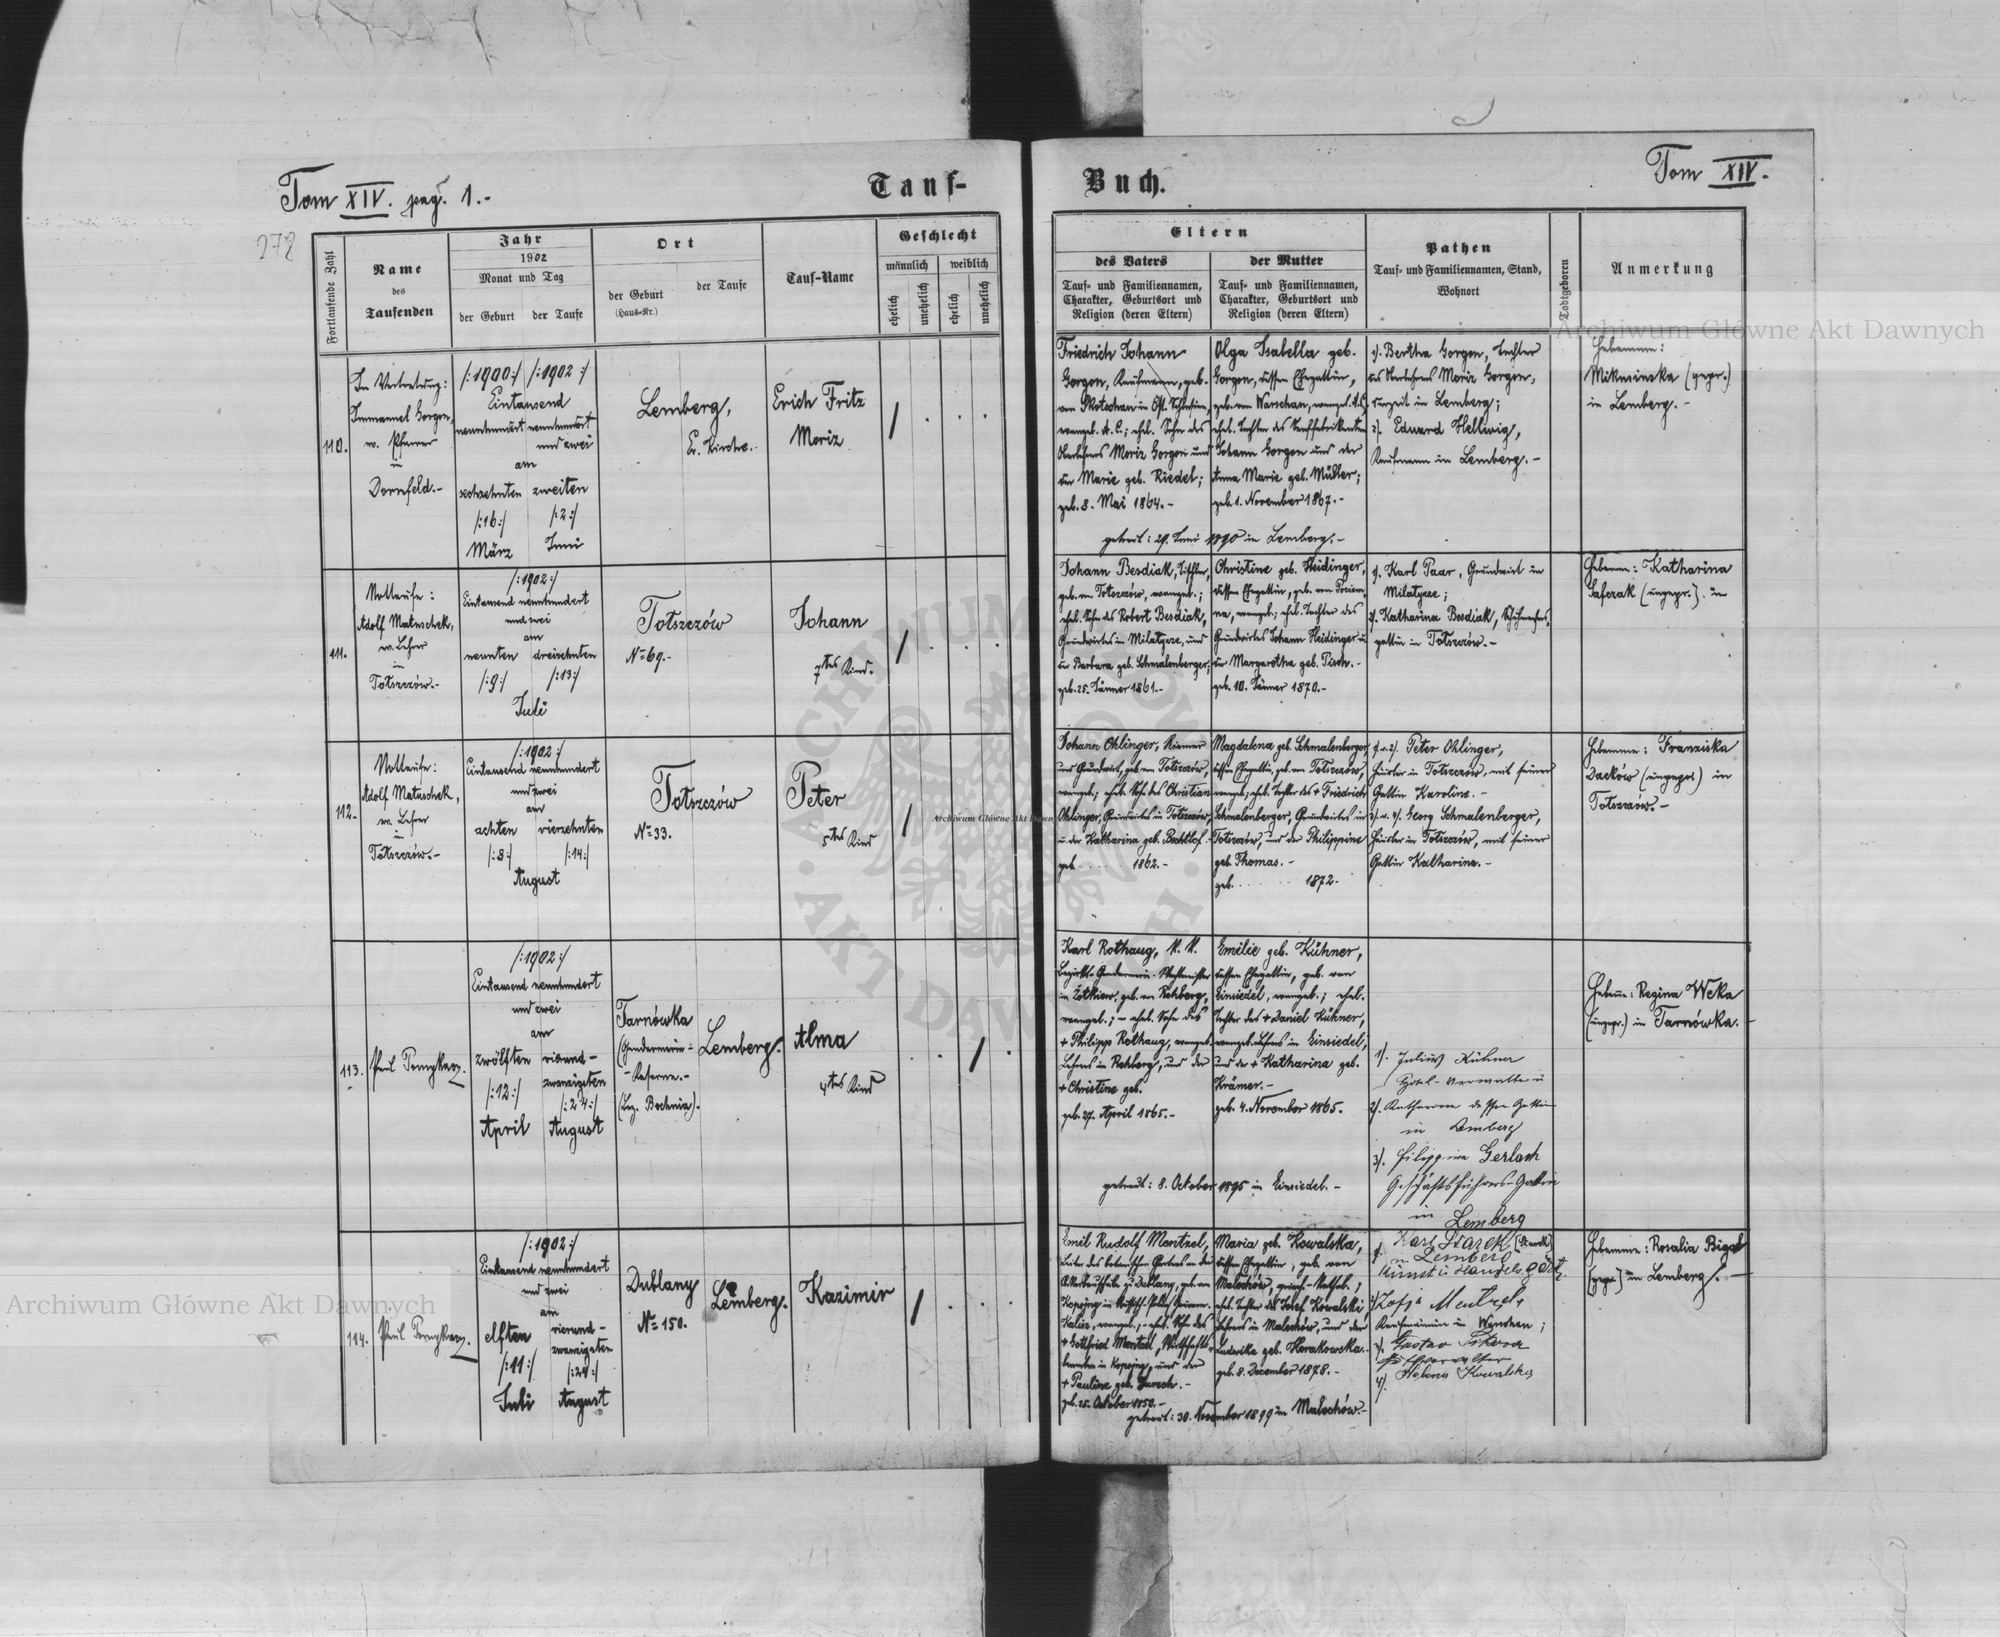 Tom XIV. pag. 1.-
Tauf-
Buch.
Tom XIV.
272
Fortlaufende Zahl
Name
des
Taufenden
Jahr
1902
Monat und Tag
der Geburt
der Taufe
Ort
der Geburt
(Haus-Nr.)
der Taufe
Tauf-Name
Geschlecht
männlich
weiblich
ehelich
unehelich
ehelich
unehelich
Eltern
des Vaters
Tauf- und Familiennamen,
Charakter, Geburtsort und
Religion (deren Eltern)
der Mutter
Tauf- und Familiennamen,
Charakter, Geburtsort und
Religion (deren Eltern)
Pathen
Tauf- und Familiennamen, Stand,
Wohnort
Todtgeboren
Anmerkung
110.
In Vertretung:
Immanuel Gorgon,
ev. Pfarrer
in
Dornfeld.-
/:1900:/ /:1902:/
Eintausend
neunhundert neunhundert
und zwei
am
sechzehnten zweiten
/:16:/ /:2:/
März Juni
Lemberg,
Ev. Kirche.-
Erich Fritz
Moriz
Friedrich Johann
Gorgon, Kaufmann, geb.
von Skotschau in Öst. Schlesien,
evangel. A.C.; ehel. Sohn des
Moriz Gorgon und
der Marie geb. Riedel;
geb. 3. Mai 1864.-
Olga Isabella geb.
Gorgon, dessen Ehegattin,
geb. von Warschau, evangel. A.C.,
ehel. Tochter des Senffabrikanten
Johann Gorgon und der
Anna Marie geb. Müller;
geb. 1. November 1867.-
getraut: 29. Juni 1890 in Lemberg.-
1). Bertha Gorgon, Tochter
des Moriz Gorgon,
derzeit in Lemberg;
2). Eduard Hellwig,
Kaufmann in Lemberg.-
Hebamme:
Mikusinska (gepr.)
in Lemberg.-
111.
Nottaufe:
Adolf Matuschek,
ev. Lehrer
in
Totszczów.-
/:1902:/
Eintausend neunhundert
und zwei
am
neunten dreizehnten
/:9:/ /:13:/
Juli
Totszczów
No 69.-
Johann
7tes Kind.
Johann Besdiak, Tischler,
geb. von Totszczów, evangel.;
ehel. Sohn des Robert Besdiak,
Grundwirtes in Milatycze, und
der Barbara geb. Schmalenberger;
geb. 25. Jänner 1861.-
Christine geb. Heidinger,
dessen Ehegattin, geb. von
evangel.; ehel. Tochter des
Grundwirtes Johann Heidinger u.
der Margaretha geb. Pisch.-
geb. 10. Jänner 1870.-
1). Karl Paar, Grundwirt in
Milatycze;
2). Katharina Besdiak,
gattin in Totszczów.-
Hebamme: Katharina
Safczak (ungepr.). in
112.
Nottaufe:
Adolf Matuschek,
ev. Lehrer
in
Totszczów.-
/:1902:/
Eintausend neunhundert
und zwei
am
achten vierzehnten
/:8:/ /:14:/
August
Totszczów
No 33.
Peter
5tes Kind
Johann Ohlinger, Riemer
und Grundwirt, geb. von Totszczów,
evangel., ehel. Sohn des Christian
Ohlinger, Grundwirtes in Totszczów,
u. der Katharina geb. Bechtlof.
geb. .... 1862.-
Magdalena geb. Schmalenberger
dessen Ehegattin, geb. von Totszczów,
evangel.; ehel. Tochter des + Friedrich
Schmalenberger, Grundwirtes in
Totszczów, und der Philippine
geb. Thomas.-
geb. ........ 1872.-
1. u. 2). Peter Ohlinger,
Häusler in Totszczów, mit seiner
Gattin Karoline.-
3). u. 4). Georg Schmalenberger,
Häusler in Totszczów, mit seiner
Gattin Katharina.-
Hebamme: Franziska
Dacków (ungepr.) in
Totszczów.-
113.
Paul
/:1902:/
Eintausend neunhundert
und zwei
am
zwölften vierund-
zwanzigsten
/:12:/ /:24:/
April August
Tarnówka
(Gendarmerie-
-Kaserne.-
(Bez. Bochnia).
Lemberg.
Alma
4tes Kind
Karl Rothaug, k. k.
Bezirks-Gendarmerie-Wachtmeister
in Żołkiew, geb. von Rehberg,
evangel.; - ehel. Sohn des
+ Philipp Rothaug, evangel.
Lehrers in Rehberg, und der
+ Christine geb.
geb. 27. April 1865.-
Emilie geb. Kühner,
dessen Ehegattin, geb. von
Einsiedel, evangel.; ehel.
Tochter des + Daniel Kühner,
evangel. Lehrers in Einsiedel,
und der + Katharina geb.
Krämer.-
geb. 4. November 1865.
getraut: 8. October 1895 in Einsiedel.-
1). Julius Kühner
Hotel-Verwalter u
2). Katharina dessen Gattin
in Lemberg
3). Filippina Gerlach
Geschäftsführers-Gattin
in Lemberg
Hebamme: Regina Weka
(ungepr.) in Tarnówka.-
114.
Paul
/:1902:/
Eintausend neunhundert
und zwei
am
elften vierund-
zwanzigsten
/:11:/ /:24:/
Juli August
Dublany
No 150.
Lemberg.
Kazimir
Emil Rudolf Mentzel,
Leiter des botanischen Gartens an der
Ackerbauschule zu Dublany, geb. von
Kopojng in
Kalisz, evangel.; - ehel. Sohn des
+ Gottfried Mentzel, Wirtschafts-
beamten in Kopojng, und der
+ Pauline geb.
geb. 25. October 1850.-
Maria geb. Kowalska,
dessen Ehegattin, geb. von
Malechów, griech.-kathol.;
ehel. Tochter des Josef Kowalski
Lehrers in Malechów, und der
Ludwika geb. Horakowska.-
geb. 8. December 1878.-
getraut: 30. November 1899 in Malechów.-
1). Karl Starek (Starck)
Lemberg
Kunst u Handelsgärt.
2). Zofia Mentzel,
Kaufmännin in Warschau;
3). Gustav Sikora
Gutsverwalter
4). Helena Kowalska
Hebamme: Rosalia Bigoł
(gepr.) in Lemberg.-
Archiwum Główne Akt Dawnych
Archiwum Główne Akt Dawnych
Archiwum Główne Akt Dawnych
ARCHIWUM GŁÓWNE
AKT DAWNYCH